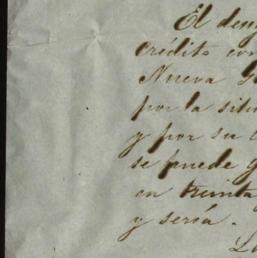 El den
crédito con
Nueva G
por la situ
y por su
se puede g
en treinta
y sería.
La